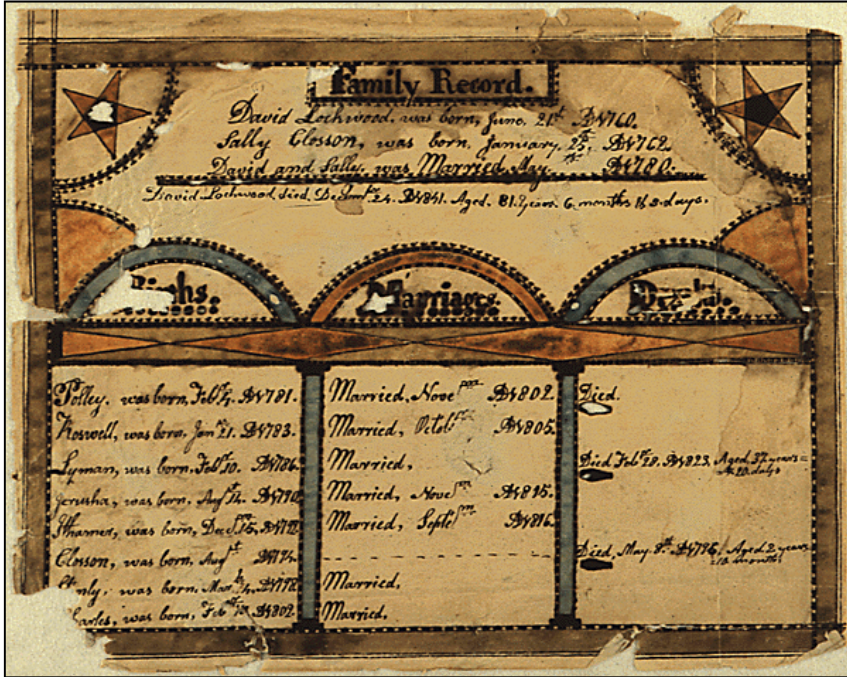 Family Record.
David Lockwood, was born, June. 21st. AD1760.
Sally Closson, was born, January, 25th, AD1762.
David and Sally, was Married May. AD1780.
David Lockwood, died, 24. AD1841. Aged. 81. years. 6. months 3. days.
Births. Marriages. Deaths.
Polley. was born, Feb 4. AD1781.
Roswell, was born, Jan 21. AD1783.
Lyman, was born, Feb 10. AD1786.
Jerusha, was born, Aug 12. AD1790.
was born, Dec 15. AD1791.
Closson, was born, Aug AD1794.
was born, Mar 4. AD1798.
Charles, was born, Feb AD1802.
Married, Nove AD1802.
Married, Octob AD1805.
Married,
Married, Nove AD1815.
Married, Septe AD1816.
Married,
Married,
Died.
Died Feb 28. AD1823. Aged 37 years
20 days
Died, May. 8th. AD1796, Aged 2 years
10 months